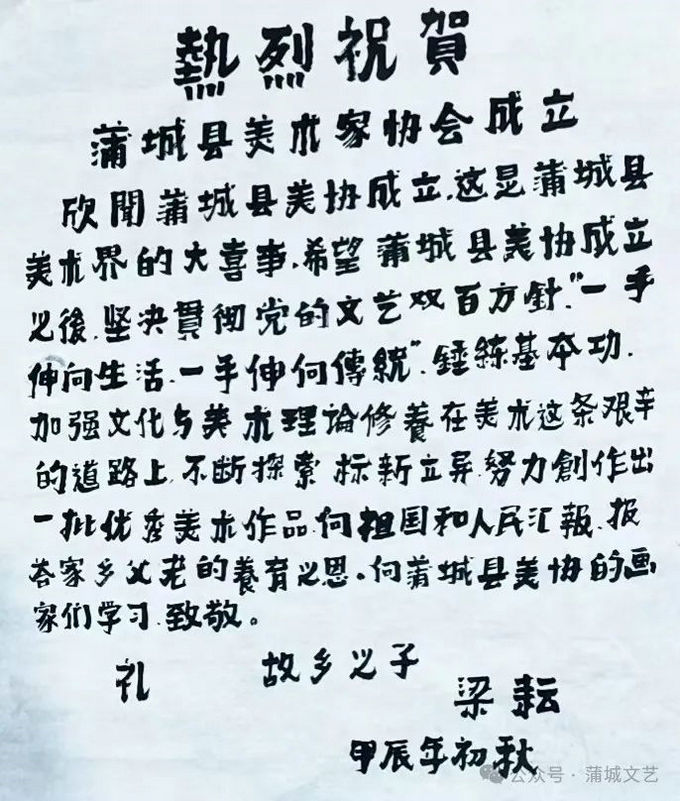 熱烈祝賀
蒲城县美术家协会成立
欣聞蒲城县美协成立.这是蒲城县
美术界的大喜事.希望蒲城县美协成立
之後.坚决貫彻党的文艺双百方針."一手
伸向生活.一手伸向傳統".錘練基本功.
加强文化与美术理论修養在美术这条艰辛
的道路上.不断探索标新立异.努力創作出
一批优秀美术作品.向祖国和人民汇報.报
答家乡父老的養育之恩。向蒲城县美协的画
家们学习.致敬。
礼 故乡之子
梁耘
甲辰年初秋
公众号·蒲城文艺